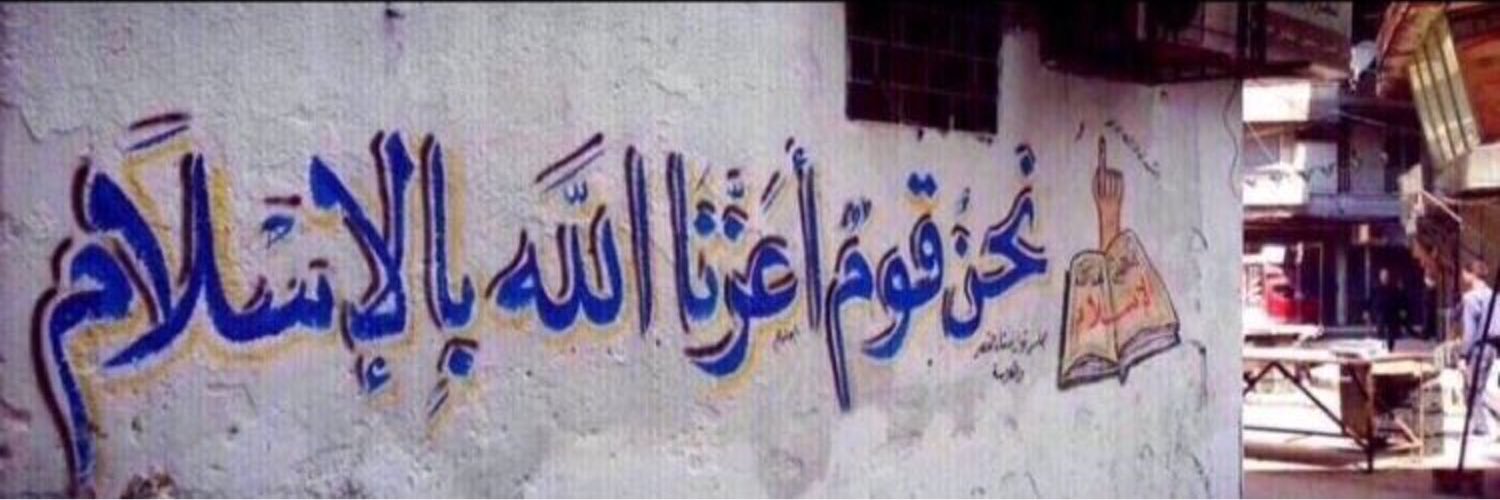 نَحنُ قَومٌ أَعَزَّنَا اللَّه بِالإِسْلَام
الإسلام